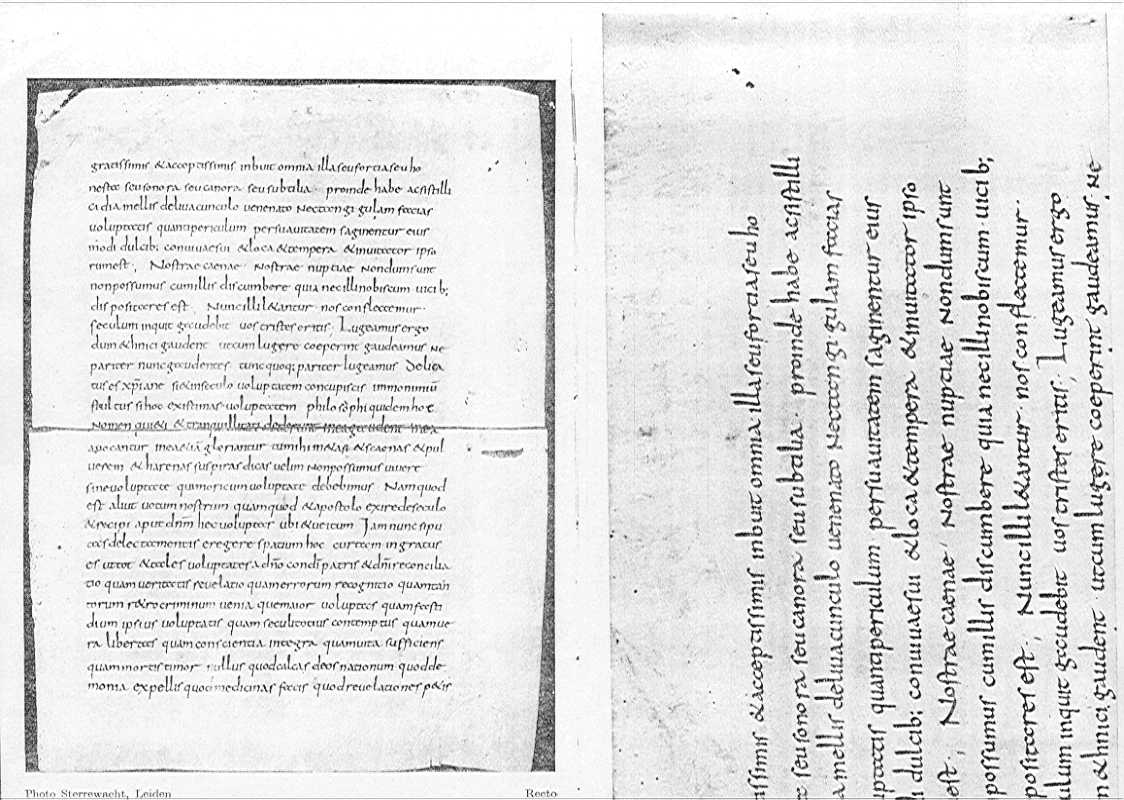 gratissimis & acceptissimis inbuit omnia illa seu fortia seu ho
nesta seu sonora seu canora seu subtilia proinde habe ac si stilli
cidia mellis de liuacunculo uenenato nec tanti gulam facias
uoluptatis quanti periculum per suauitatem saginentur eius
modi dulcib; conuiuae sui & loca & tempera & inuitator ipso
rum est; Nostrae caenae Nostrae nuptiae Nondum sunt
non possumus cum illis discumbere quia nec illi nobiscum uicib;
disposita res est; Nunc illi l&antur nos conflectemur
seculum inquit gaudebit uos tristes eritis; Lugeamus ergo
dum & hnici gaudent ut cum lugere coeperint gaudeamus Ne
pariter nunc gaudentes tunc quoq; pariter lugeamus Delica
tus es xpiane si & in seculo uoluptatem concupiscis immo nimiū
stultus si hoc existimas uoluptatem philosophi quidem hoc
Nomen qui&i & tranquillitati dederunt in ea gaudent in ea
auocantur in ea &iā gloriantur tu mihi m&as & scaenas & pul
uerem & harenas suspiras dicas uelim non possumus uiuere
sine uoluptate qui mori cum uoluptate debebimus Nam quod
est aliut uotum nostrum quam quod & apostolo exire de seculo
& recipi aput dnm hec uoluptas ubi & uotum Jam nunc si pu
tas delectamentis exegere spatium hoc cur tam ingratus
es ut tot & tales uoluptates a dno
quam ueritatis reuelatio quam errorum recognitio quam tan
torum r&ro criminum uenia que maior uoluptas quam fasti
dium ipsius uoluptatis quam seculi totius contemptus quam ue
ra libertas quam conscientia integra quam uita sufficiens
quam mortis timor nullus quod calcas deos nationum quod de
monia expellis quod medicinas facis quod reuelationes p&is
Photo Sterrewacht, Leiden
Recto
issimis & acceptissimis inbuit omnia illa seu fortia seu ho
seu sonora seu canora seu subtilia proinde habe ac si stilli
a mellis de liuacunculo uenenato nec tanti gulam facias
uptatis quanti periculum per suauitatem saginentur eius
i dulcib; conuiuae sui & loca & tempera & inuitator ipso
est; Nostrae caenae Nostrae nuptiae Nondum sunt
possumus cum illis discumbere quia nec illi nobiscum uicib;
posita res est; Nunc illi l&antur nos conflectemur
ulum inquit gaudebit uos tristes eritis; Lugeamus ergo
n & hnici gaudent ut cum lugere coeperint gaudeamus Ne